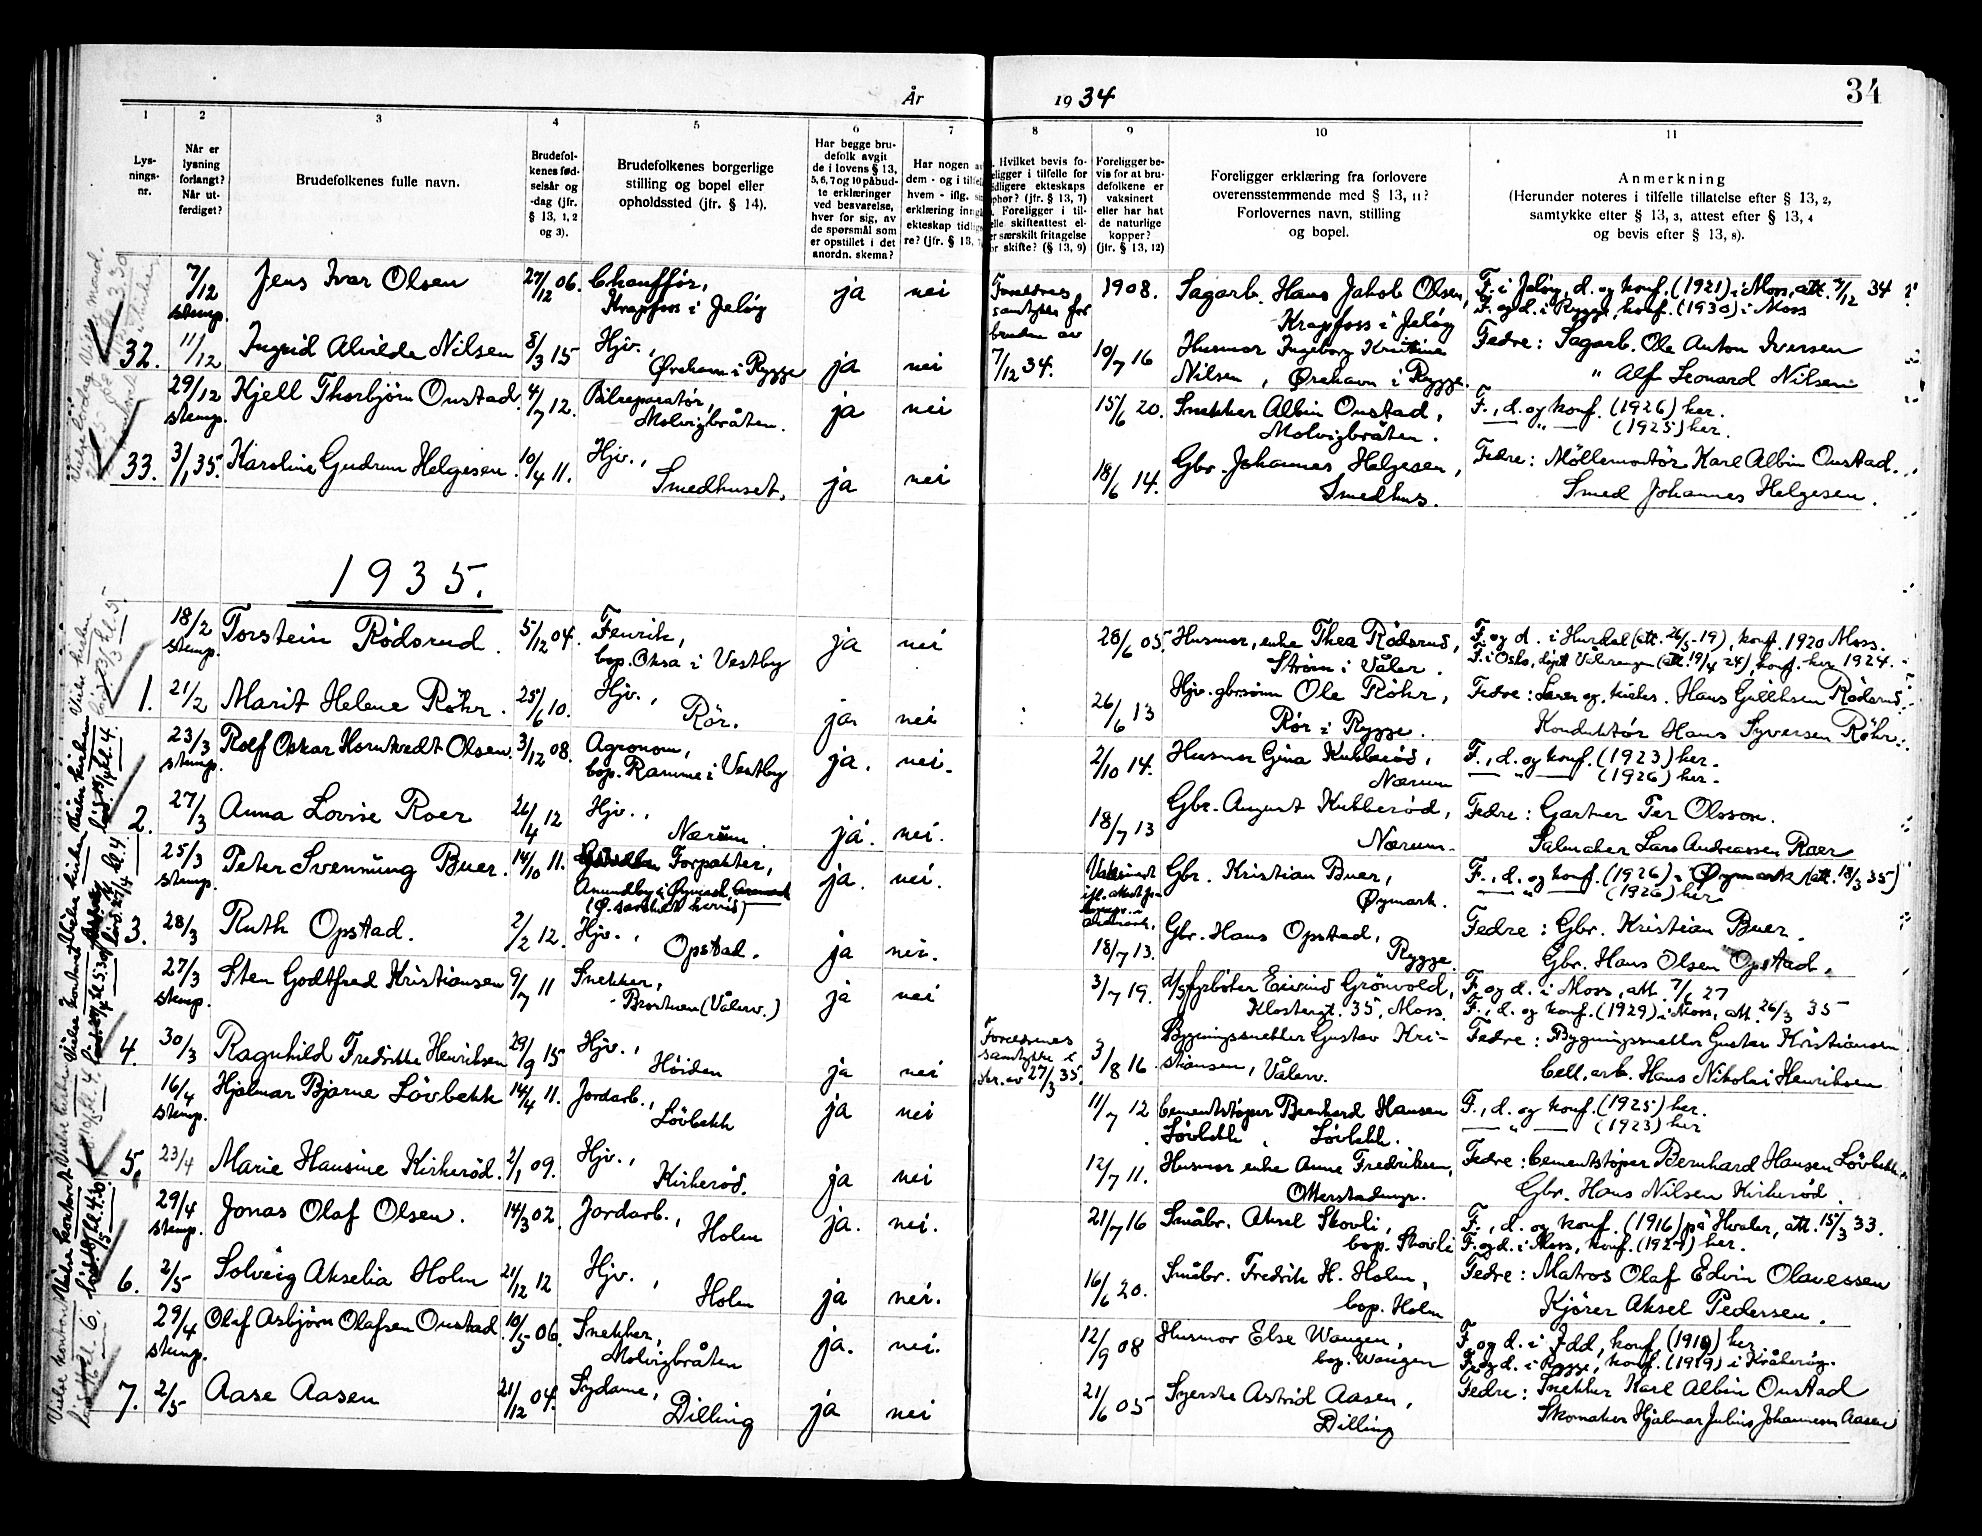 34
År 1934
1 2 3 4 5 6 7 8 9 10 11
Lys-
nings-
nr.
Når er
lysning
forlangt?
Når ut-
ferdiget?
Brudefolkenes fulle navn.
Brudefol-
kenes fød-
selsår og
-dag (jfr.
§ 13, 1, 2
og 3).
Brudefolkenes borgerlige
stilling og bopel eller
opholdssted (jfr. § 14).
Har begge bru-
defolk avgit
de i lovens § 13,
5, 6, 7 og 10 påbud-
te erklæringer
ved besvarelse,
hver for sig, av
de spørsmål som
er opstillet i det
anordn. skema?
Har nogen
dem - og i tilf
hvem - iflg.
erklæring inng
ekteskap tidlig
re? (jfr. § 13,
Hvilket bevis fo-
eligger i tilfelle for
idligere ekteskaps
phør? (jfr. § 13, 7)
Foreligger i til-
elle skifteattest el-
er særskilt fritagelse
or skifte? (§ 13, 9)
Foreligger be-
vis for at bru-
defolkene er
vaksinert
eller har hat
de naturlige
kopper?
(jfr. § 13, 12)
Foreligger erklæring fra forlovere
overensstemmende med § 13, 11?
Forlovernes navn, stilling
og bopel.
Anmerkning
(Herunder noteres i tilfelle tillatelse efter § 13, 2,
samtykke efter § 13, 3, attest efter § 13, 4
og bevis efter § 13, 8).
7/12 stemp. Jens Ivar Olsen 27/12 06. Chauffør, Krapfoss i Jeløy ja nei Foreldres samtykke for bruden av 7/12 34. 1908. Sagarb. Hans Jakob Olsen, Krapfoss i Jeløy F. i Jeløy, d. og konf. (1921) i Moss, att. 7/12 34
F. og d. i Rygge, konf. (1930) i Moss
32. 11/12 Ingrid Alvilde Nilsen 8/3 15 Hjv., Ørehavn i Rygge ja nei 10/7 16 Husmor Ingeborg Kristine Nilsen, Ørehavn i Rygge. Fedre: Sagarb. Ole Anton Iversen
" Alf Leonard Nilsen
29/12 stemp. Kjell Thorbjörn Onstad. 4/7 12. Bilreparatør, Molvigbråten. ja nei 15/6 20. Snekker Albin Onstad, Molvigbråten. F., d. og konf. (1926) her.
— " — (1925) her.
33. 3/1 35. Karoline Gudrun Helgesen. 10/4 11. Hjv., Smedhuset. ja nei 18/6 14. Gbr. Johannes Helgesen, Smedhus. Fedre: Møllemontör Karl Albin Onstad.
Smed Johannes Helgesen.
1935.
18/2 stemp. Torstein Rödsrud. 5/12 04. Fenrik, bop. Oksa i Vestby ja nei 28/6 05. Husmor, enke Thea Rödsrud, Ström i Våler. F. og d. i Hurdal (att. 26/5-19), konf. 1920 Moss.
F. i Oslo, döpt Vålerengen (att. 19/4 24), konf. her 1924.
1. 21/2 Marit Helene Röhr. 25/6 10. Hjv., Rör. ja. nei 26/6 13 Hjv. gbrsönn Ole Röhr, Rör i Rygge. Fedre: Lærer og kirkes. Hans Gulliksen Rödsrud.
Konduktör Hans Syversen Röhr.
23/3 stemp. Rolf Oskar Hornkvedt Olsen. 3/12 08. Agronom, bop. Ramme i Vestby ja. nei. 2/10 14. Husmor Gina Kubberöd, Nærum F., d. og konf. (1923) her.
— " — (1926) her.
2. 27/3 Anna Lovise Roer 26/4 12 Hjv., Nærum. ja. nei. 18/7 13 Gbr. August Kubberöd, Nærum. Fedre: Gartner Per Olsson.
Salmaker Lars Andreassen Roer
25/3 stemp. Peter Svenning Buer. 14/10 11. Forpakter, Anundby i Øymark ja. nei. Vaksinert Gbr. Kristian Buer, Øymark. F., d. og konf. (1926) i Øymark (att. 18/3 35)
— " — (1926) her
3. 28/3 Ruth Opstad. 2/2 12. Hjv., Opstad. ja nei. 18/7 13. Gbr. Hans Opstad, Rygge. Fedre: Gbr. Kristian Buer.
Gbr. Hans Olsen Opstad.
27/3 stemp. Sten Godtfred Kristiansen 9/7 11 Snekker, (Vålerv.) ja nei 3/7 19. Eivind Grönvold, Klostergt. 35, Moss. F. og d. i Moss, att. 7/6 27
F., d. og konf. (1929) i Moss, att. 26/3 35
4. 30/3 Ragnhild Fredrikke Henriksen 29/9 15 Hjv., Höiden ja nei Foreldrenes samtykke i skr. av 27/3 35. 3/8 16 Bygningssnekker Gustav Kri-
stiansen, Vålerv. Fedre: Bygningssnekker Gustav Kristiansen
Cell. arb. Hans Nikolai Henriksen
16/4 stemp. Hjalmar Bjarne Lövbekk 14/4 11. Jordarb., Lövbekk ja nei 11/7 12 Cementstöper Bernhard Hansen Lövbekk, Lövbekk. F., d. og konf. (1925) her.
— " — (1923) her
5. 23/4 Marie Hansine Kirkeröd. 2/1 09. Hjv., Kirkeröd. ja nei 12/7 11. Husmor enke Anne Fredriksen, Otterstadmyr. Fedre: Cementstöper Bernhard Hansen Lövbekk.
Gbr. Hans Nilsen Kirkeröd.
29/4 stemp. Jonas Olaf Olsen. 14/3 02 Jordarb., Holm ja. nei. 21/7 16 Småbr. Aksel Skovli, bop. Skovli F., d. og konf. (1916) på Hvaler, att. 15/3 33.
F. og d. i Moss, konf. (1927) her.
6. 2/5 Solveig Akselia Holm 21/12 12 Hjv., Holm ja nei. 16/6 20. Småbr. Fredrik H. Holm, bop. Holm Fedre: Matros Olaf Edvin Olavessen
Kjörer Aksel Pedersen.
29/4 stemp. Olaf Asbjörn Olafsen Onstad 10/5 06 Snekker, Molvigbråten ja. nei. 12/9 08 Husmor Else Wangen, bop. Wangen F. og d. i Idd, konf. (1919) her.
F. og d. i Rygge, konf. (1919) i Kråkeröy.
7. 2/5 Aase Aasen 21/12 04. Sydame, Dilling ja nei 21/6 05 Syerske Astrid Aasen, Dilling Fedre: Snekker Karl Albin Onstad
Skomaker Hjalmar Julius Johannesen Aasen